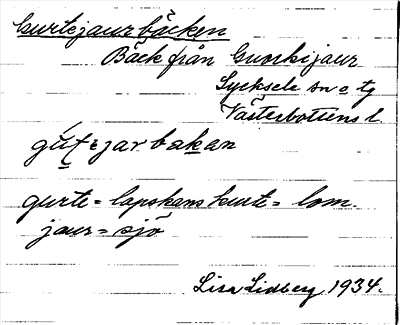 Gurtejaurbäcken
Bäck från Guorkijaur
Lycksele sn o tg
Västerbottens l.
gút̯ejarbakan
gurte = lapskans kurte = lom.
jaur = sjö
Lisa Lidberg 1934.